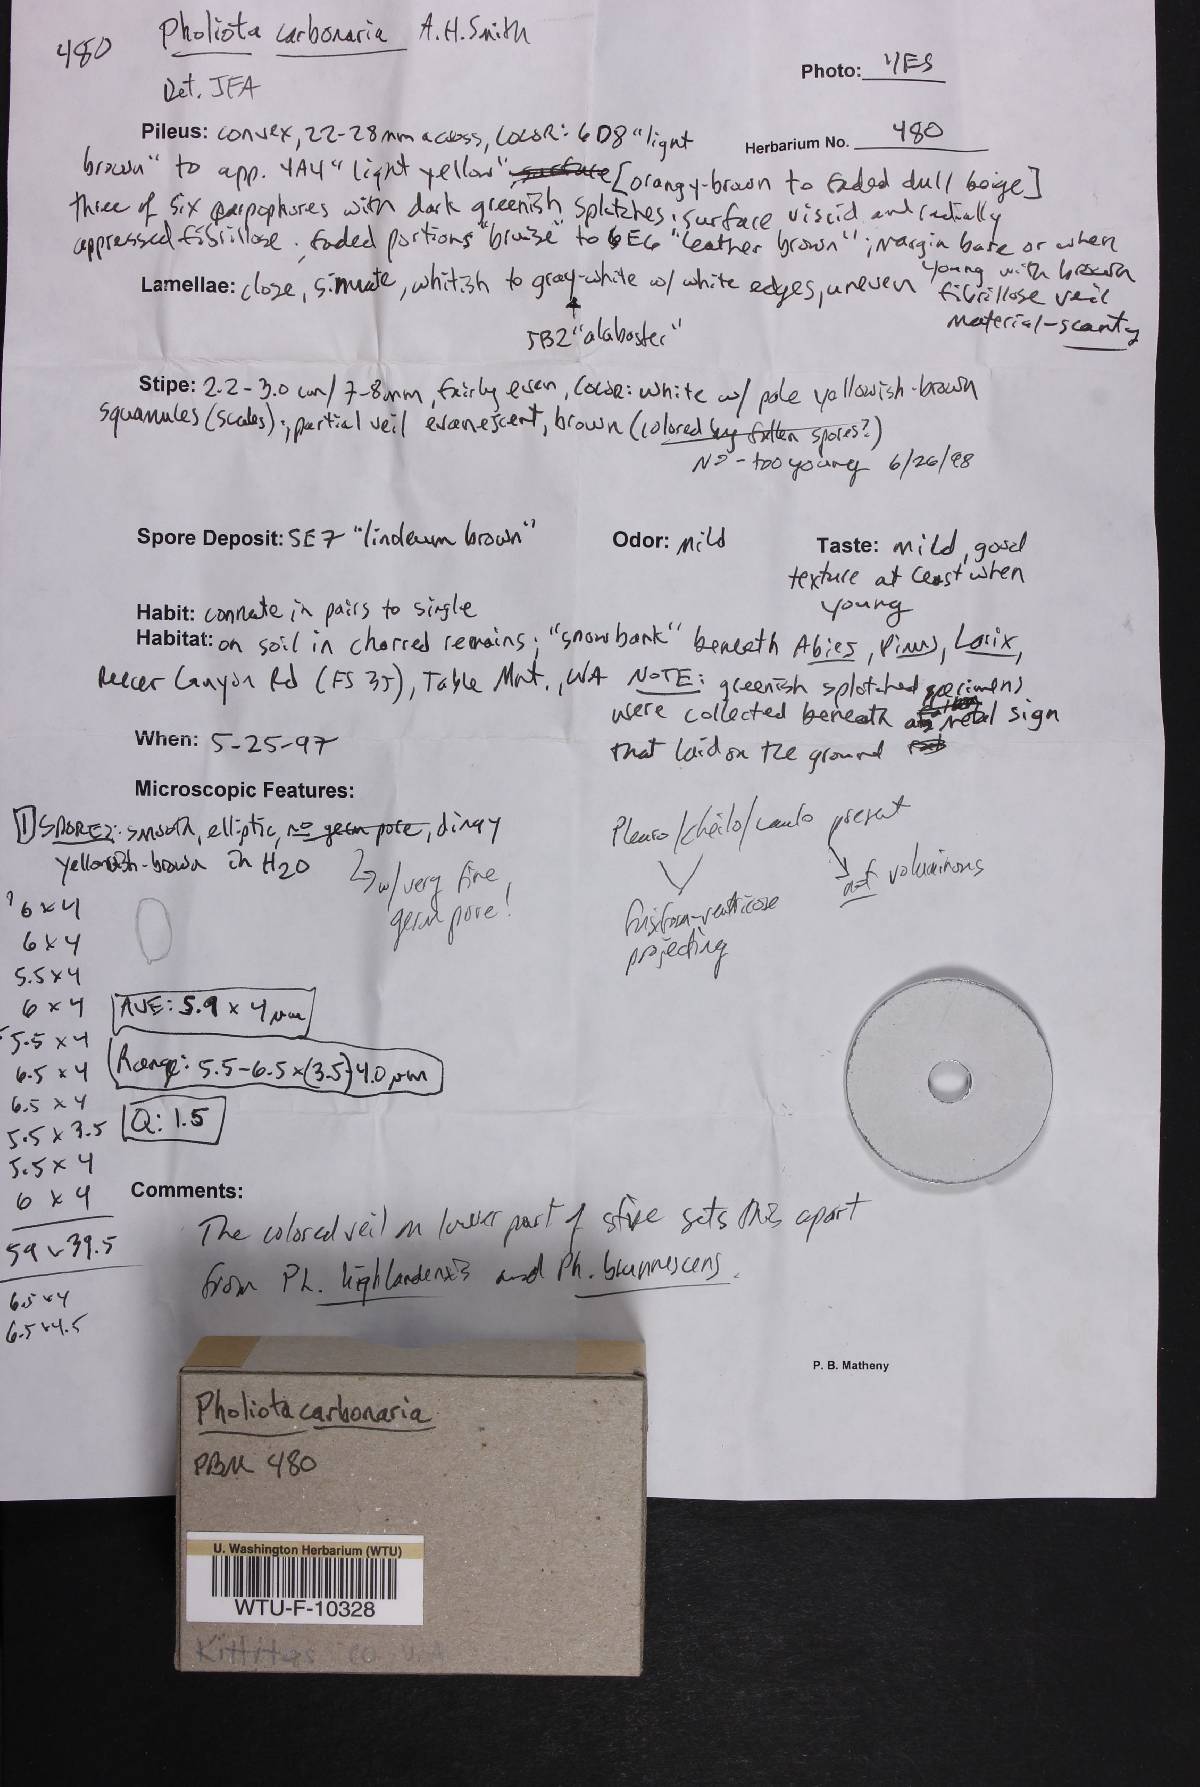 480 Pholiota carbonaria A.H.Smith
Det. JFA
Photo: YES
Herbarium No. 480
Pileus: convex, 22-28mm across, COLOR: 6D8 "light
brown" to app. 4A4 "light yellow", surface [orangy-brown to faded dull beige]
three of six carpophores with dark greenish splotches; surface viscid and radially
appressed fibrillose; faded portions "bruise" to 6E6 "leather brown"; margin bare or when
young with brown
fibrillose veil
material-scanty
Lamellae: close, sinuate, whitish to gray-white w/ white edges, uneven
5B2 "alabaster"
Stipe: 2.2-3.0 cm/7-8mm, fairly even, COLOR: white w/ pale yellowish-brown
squamules (scales); partial veil evanescent, brown (colored by fallen spores?)
No - too young 6/26/98
Spore Deposit: 5E7 "linoleum brown"
Odor: mild
Taste: mild, good
texture at least when
young
Habit: connate in pairs to single
Habitat: on soil in charred remains; "snowbank" beneath Abies, Pinus, Larix,
Reecer Canyon Rd (FS 35), Table Mnt., WA NOTE: greenish splotched specimens
were collected beneath a metal sign
that laid on the ground
When: 5-25-97
Microscopic Features:
1 SPORES: smooth, elliptic, no germ pore, dingy
yellowish-brown in H2O
w/ very fine
germ pore!
Pleuro/cheilo/caulo present
not voluminous
fusiform-ventricose
projecting
6 x 4
6 x 4
5.5 x 4
6 x 4
5.5 x 4
6.5 x 4
6.5 x 4
5.5 x 3.5
5.5 x 4
6 x 4
59 x 39.5
6.5 x 4
6.5 x 4.5
AVE: 5.9 x 4 µm
Range: 5.5-6.5 x (3.5-)4.0 µm
Q: 1.5
Comments:
The colored veil on lower part of stipe sets this apart
from Ph. highlandensis and Ph. brunnescens.
P. B. Matheny
Pholiota carbonaria
PBM 480
U. Washington Herbarium (WTU)
WTU-F-10328
Kittitas Co. WA